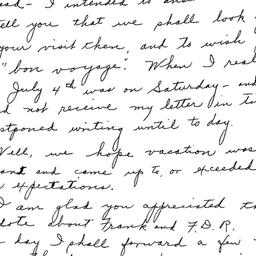 I intended to
tell you that we shall look
your visit then, and to wish
"bon voyage". When I real
July 4th was on Saturday - and
not receive my letter in ti
stponed writing until to day.
Well, we hope vacation was
and came up to, or exceeded
expectations.
I am glad you appreciated t
dote about Frank and F.D.R.
day I shall forward a few